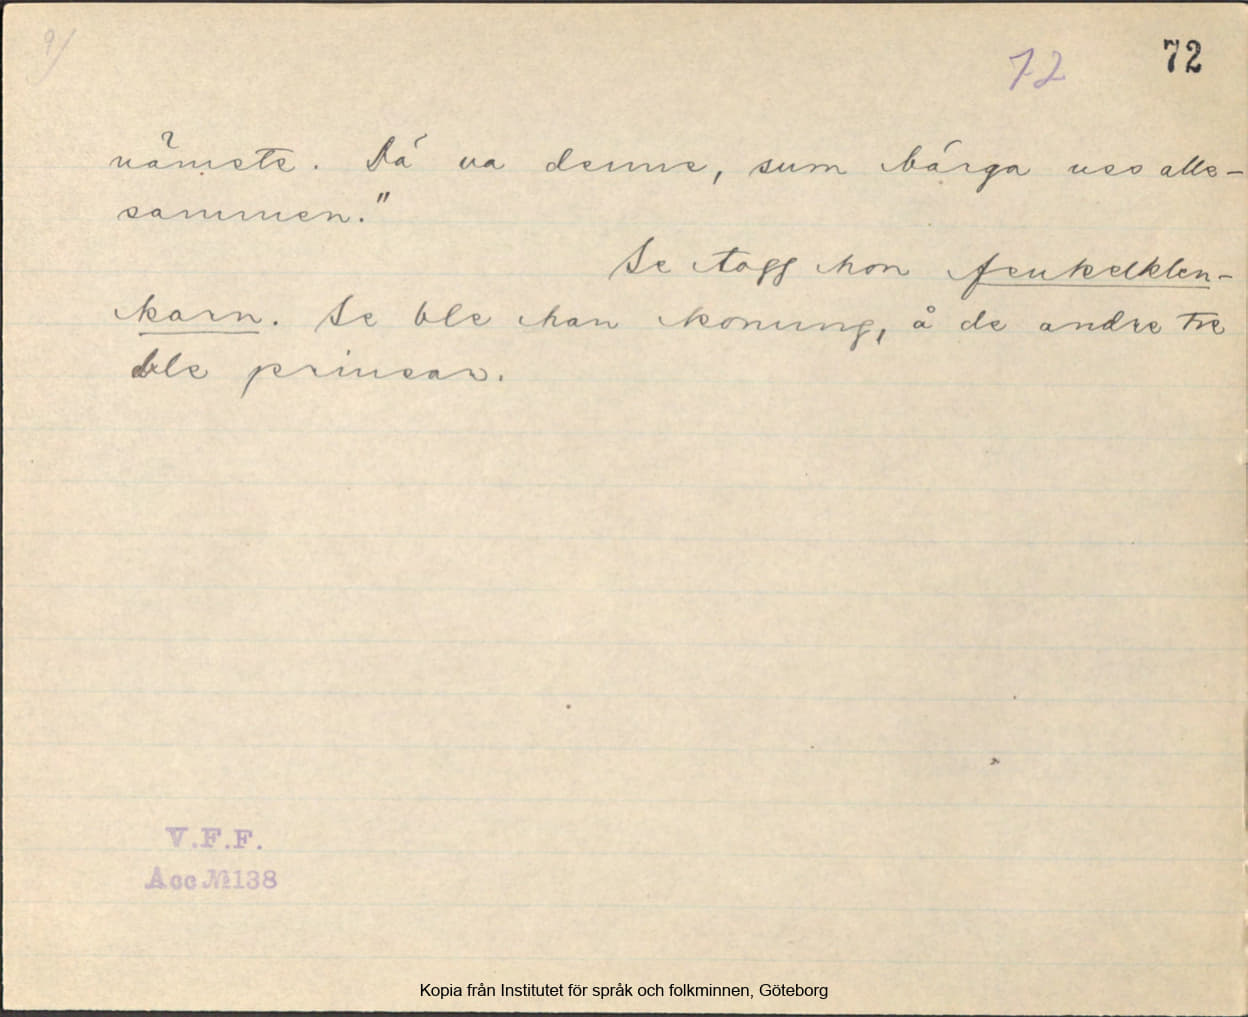 9/
72 72
nämste. Dá va denne, sum bárga uss alle-
sammen."
Se togg hon fenkelklen-
karn. Se ble han konung, å de andre tre
ble prinsar.
V.F.F.
Acc №138
Kopia från Institutet för språk och folkminnen, Göteborg